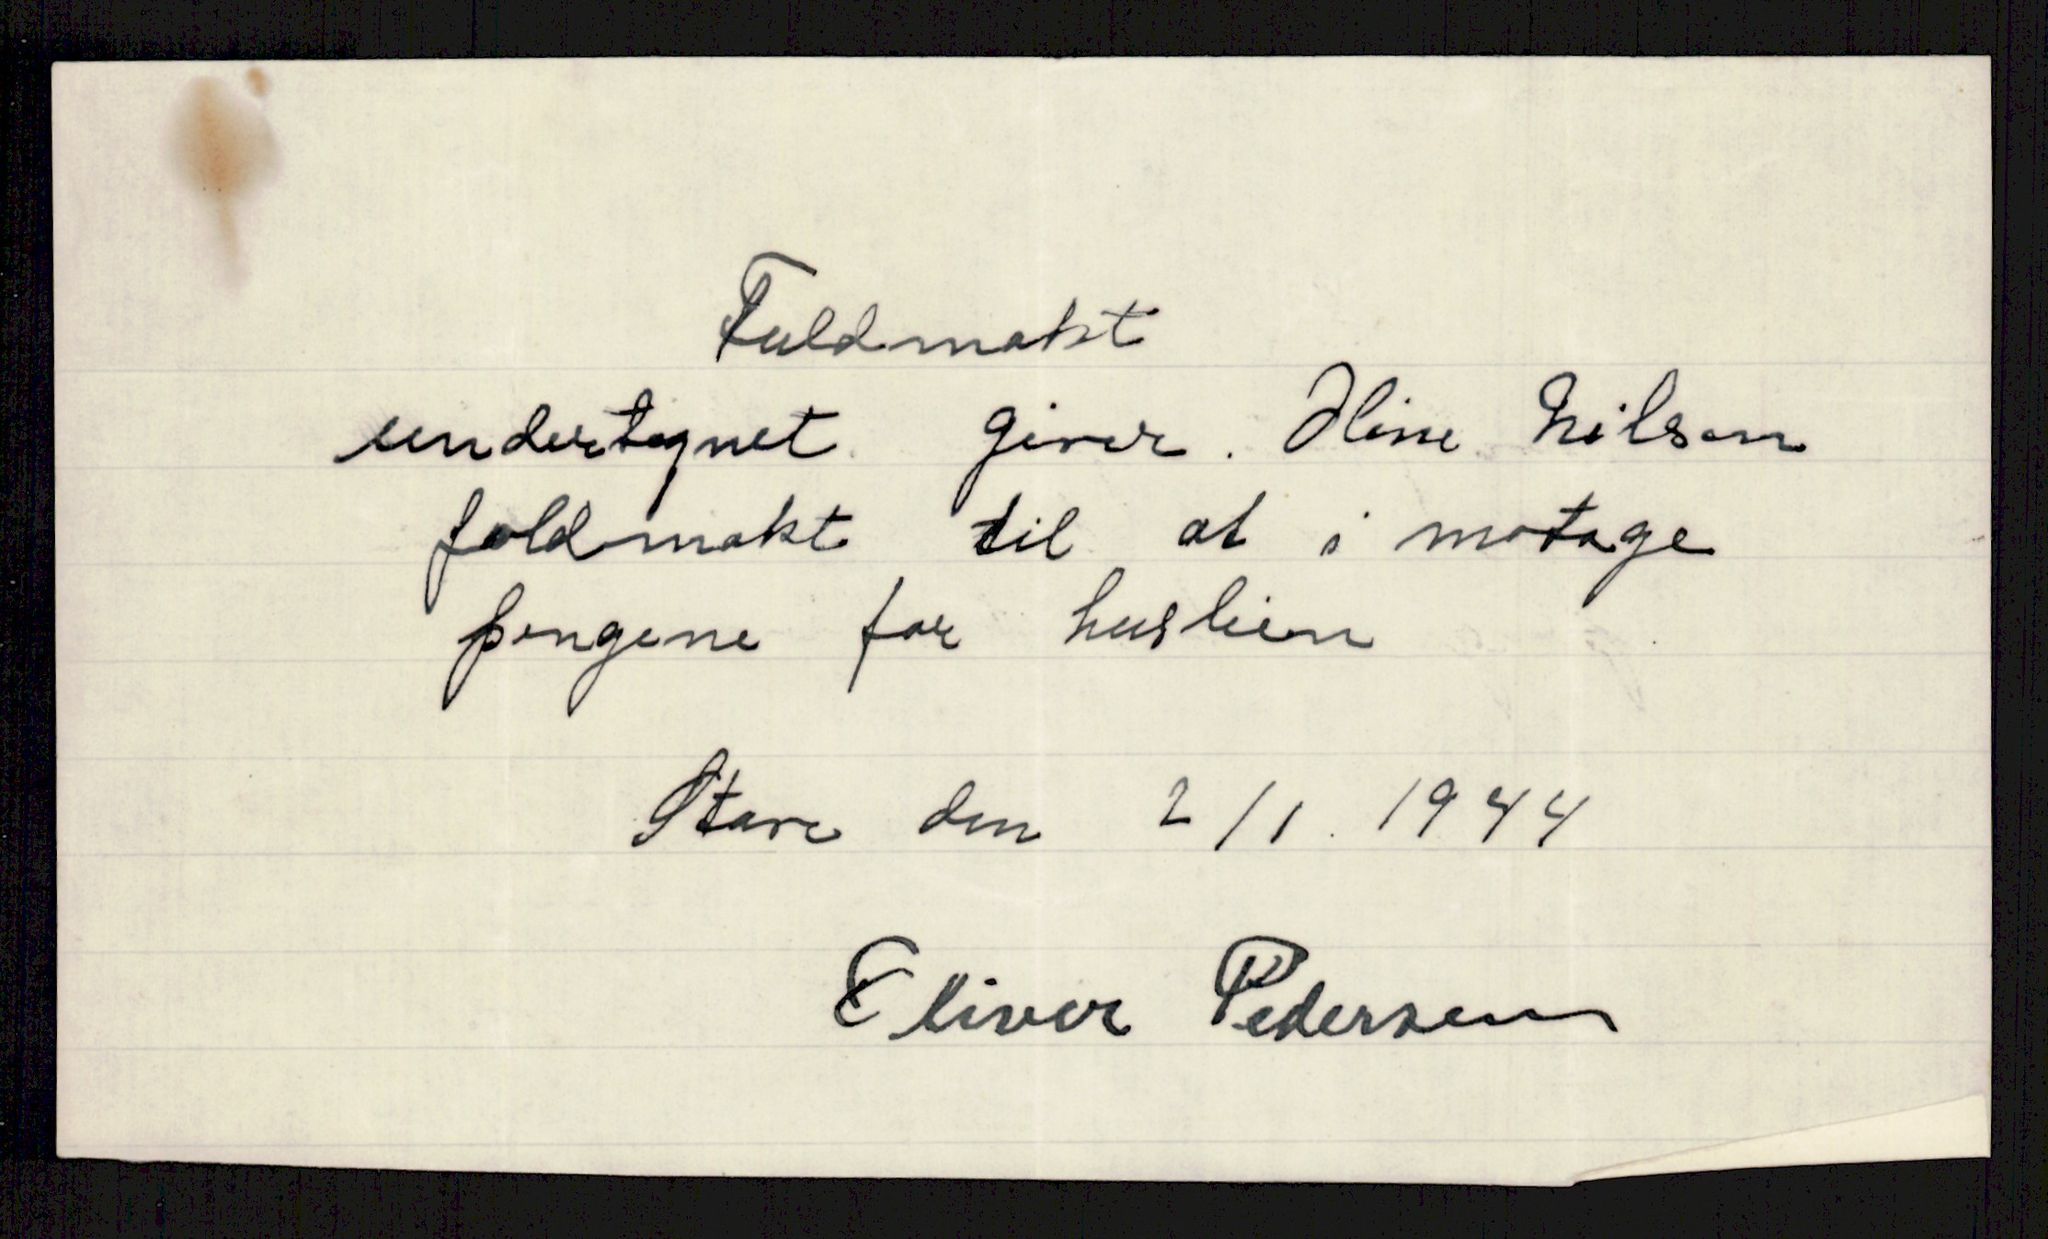 Fuldmakt
undertegnet giver. Hine Nilsen
foldmakt til at i motage
pengene for husleien
Stave den 2/1. 1944
Eliver Pedersen